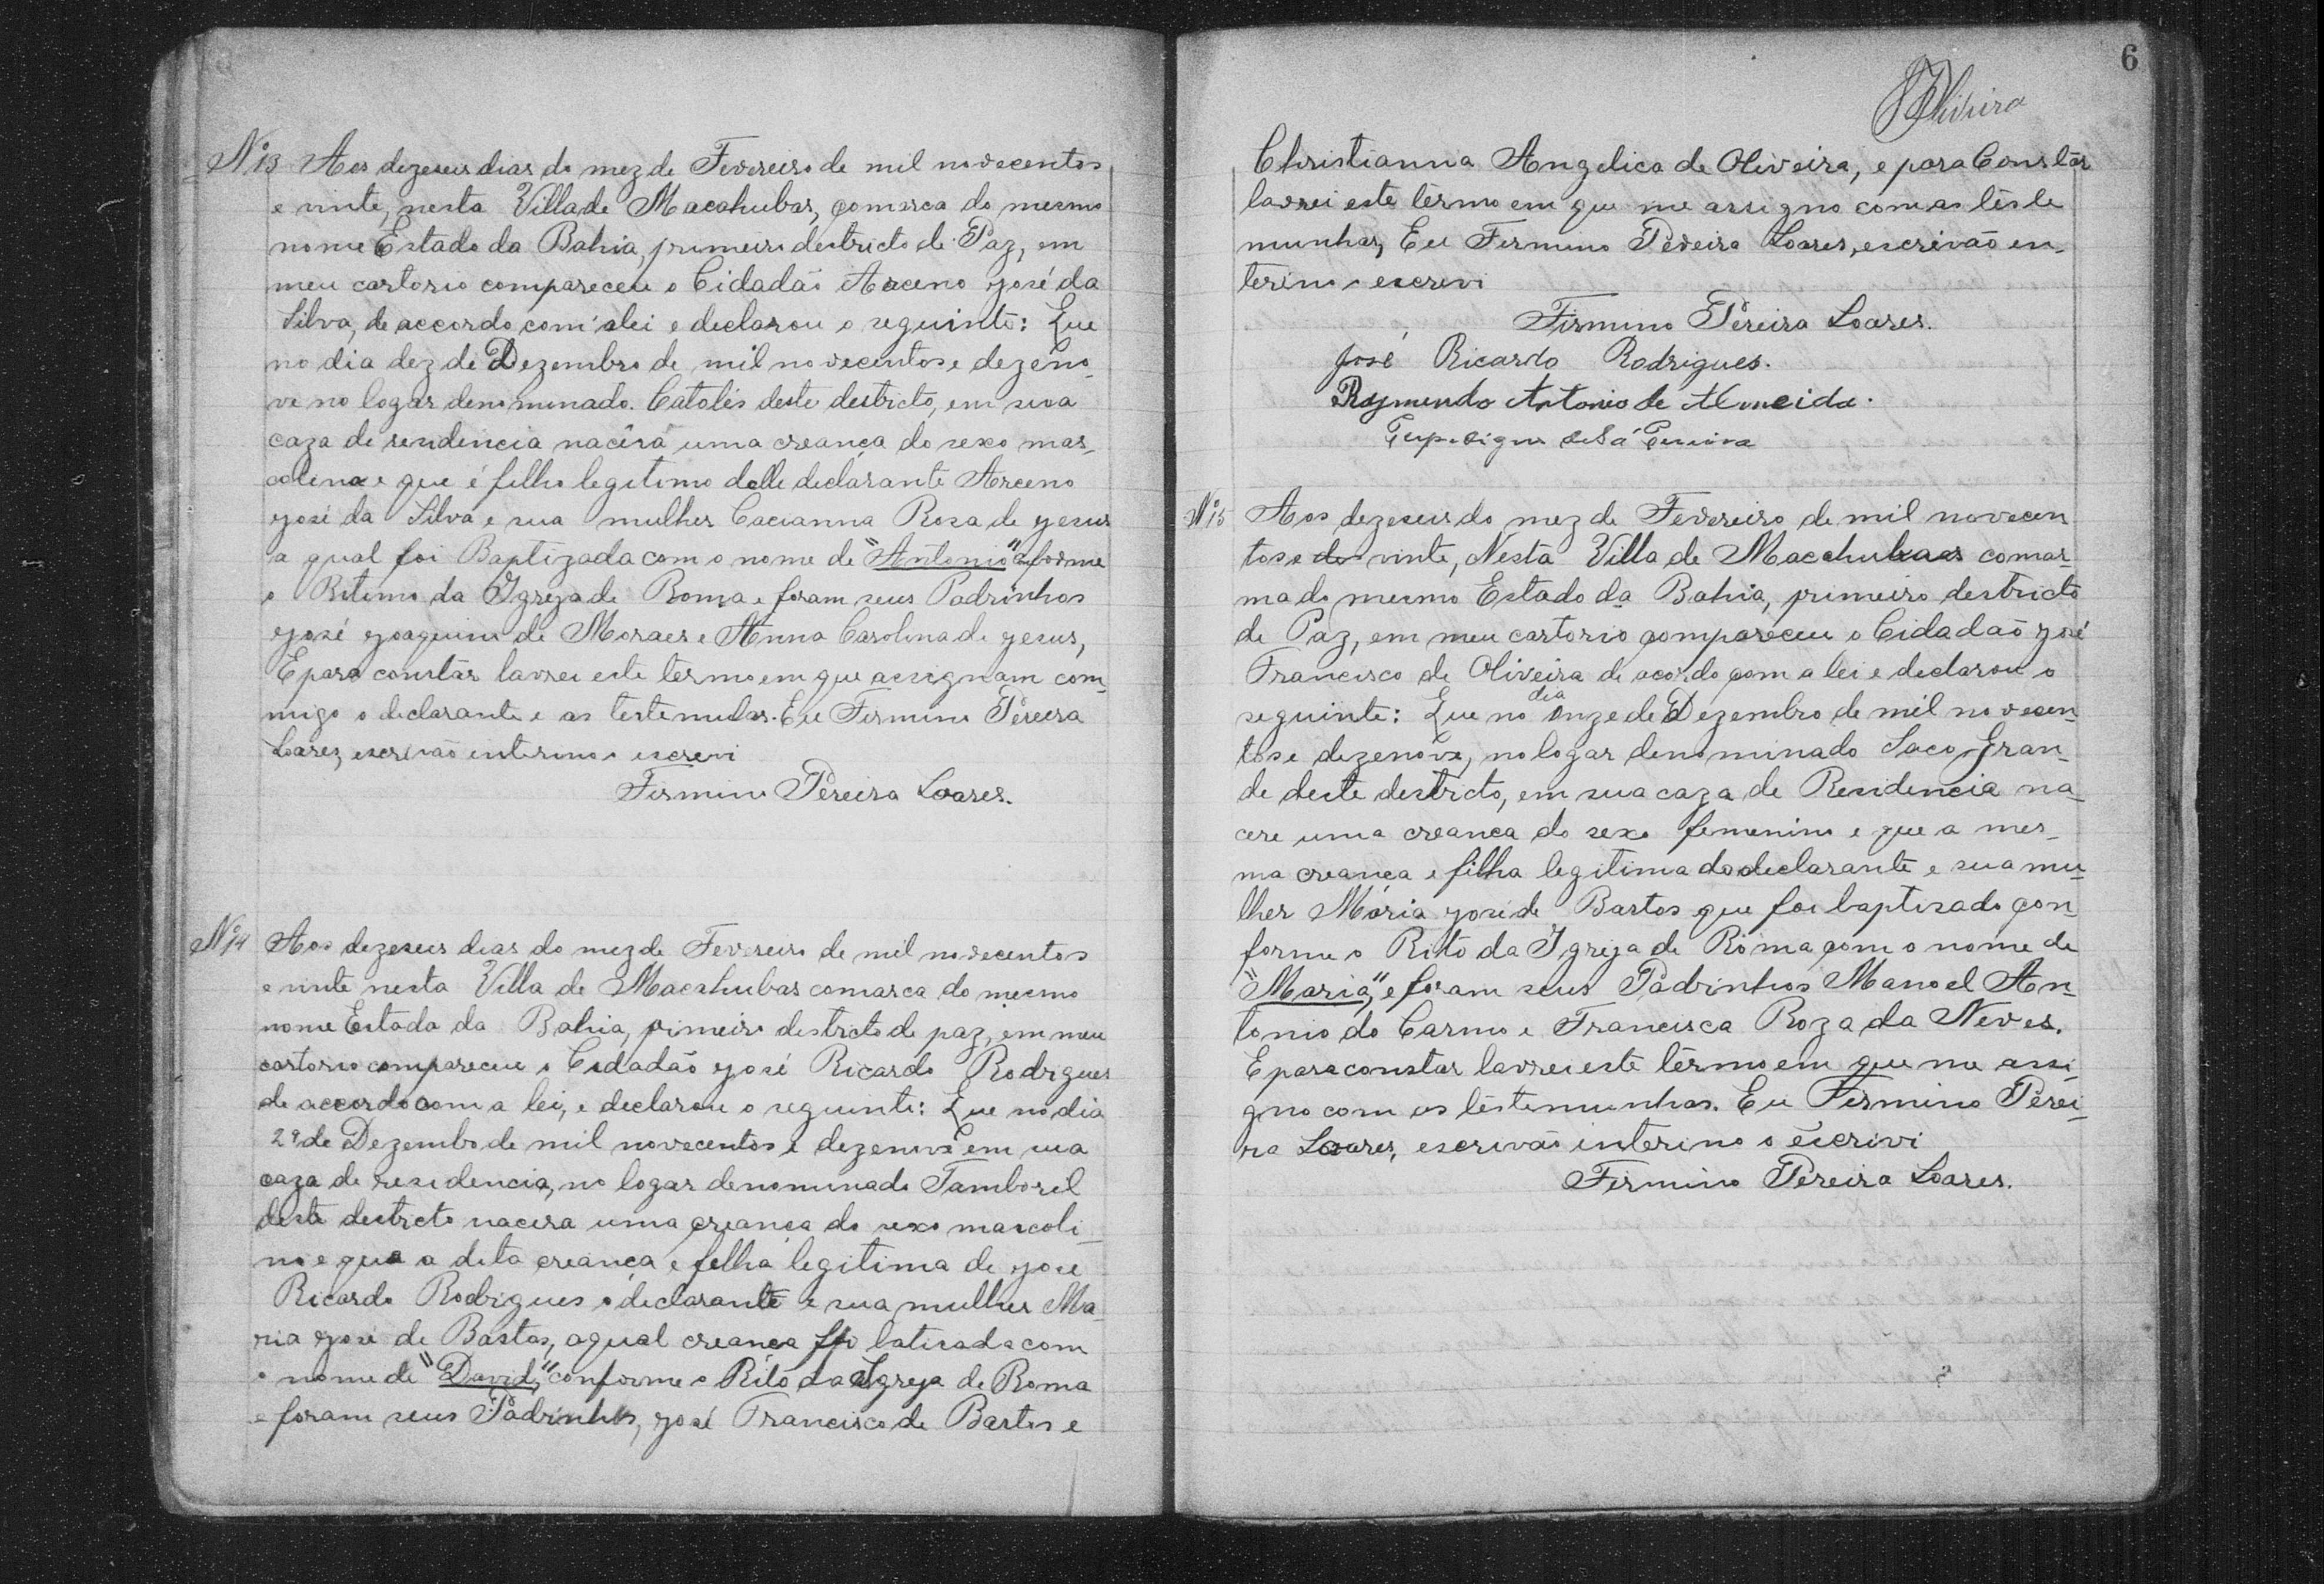 Nº 13 Aos dezeseis dias do mez de Fevereiro de mil novecentos
e vinte, nesta Villa de Macahubas, comarca do mesmo
nome Estado da Bahia, primeiro destricto de Paz, em
meu cartorio compareceu o Cidadão Arceno José da
Silva, de accordo com a lei e declarou o seguinte: Que
no dia dez de Dezembro de mil novecentos e dezeno-
ve no logar denominado Catolés deste destricto, em sua
caza de rendencia nacêrá uma creança do sexo mas-
colino e que é filho legitimo delle declarante Arceno
José da Silva e sua mulher Cacianna Rosa de Jesus
a qual foi Baptizada com o nome de "Antonio" conforme
o Ritimo da Igreja de Roma e foram seus Padrinhos
José Joaquim de Moraes e Anna Carolina de Jesus,
E para constár lavrei este termo em que assignam com-
migo o declarante e as testemulas. Eu Firmino Pereira
Loares, escrivão enterino o escrevi
Firmino Pereira Loares.
Nº 14 Aos dezeseis dias do mez de Fevereiro de mil novecentos
e vinte nesta Villa de Macahubas comarca do mesmo
nome Estado da Bahia, pimeiro destricto de paz, em meu
cartorio compareceu o Cidadão José Ricardo Rodrigues
de accordo com a lei, e declarou o seguinte: Que no dia
29 de Dezembo de mil novecentos e dezenove em sua
caza de residencia, no logar denominado Tamboril
deste destricto nacera uma creança do sexo mascoli-
no e que a dita creança e felha legitima de José
Ricardo Rodrigues o declarante e sua mulher Ma-
ria José de Bastos, a qual creança foi batisada com
o nome de "David," conforme o Rito da Igreja de Roma
e foram seus Padrinhos, José Francisco de Bastos e
6
Oliveira
Christianna Angelica de Oliveira, e para Constár
lavrei este têrmo em que me assigno com as têste
munhas, Eu Firmino Pereira Loares, escrivão en-
terino o escrevi
Firmino Pereira Loares.
José Ricardo Rodrigues.
Raymundo Antonio de Almeida.
Nº 15 Aos dezeseis do mez de Fevereiro de mil novecen
tos e de vinte, Nesta Villa de Macahubas comar-
ma do mesmo Estado da Bahia, primeiro destricto
de Paz, em meu cartorio compareceu o Cidadão José
Francisco de Oliveira de acordo com a lei e declarou o
seguinte: Que no dia onze de Dezembro de mil novecen-
tos e dezenove, no logar denominado Saco gran-
de deste destricto, em sua caza de Residencia na-
cere uma creança do sexo femenino e que a mes-
ma creança e filha legitima do declarante e sua mu-
lher Mária José de Bastos que foi baptisado con-
forme o Rito da Igreja de Roma com o nome de
"Maria", e foram seus Padrinhos Manoel An-
tonio do Carmo e Francisca Roza da Neves.
E para constar lavrei este têrmo em que me assi-
gno com as têstemunhas. Eu Firmino Perei-
ra Loares, escrivão interino o escrivi
Firmino Pereira Loares.